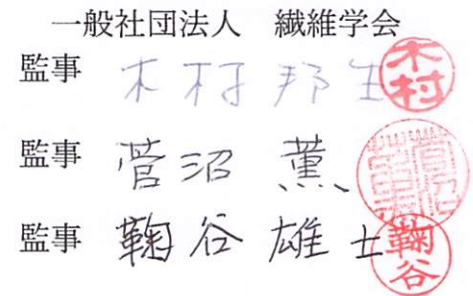 一般社団法人　繊維学会
監事　木村邦生　木村
監事　菅沼　薫
監事　鞠谷雄士　鞠谷